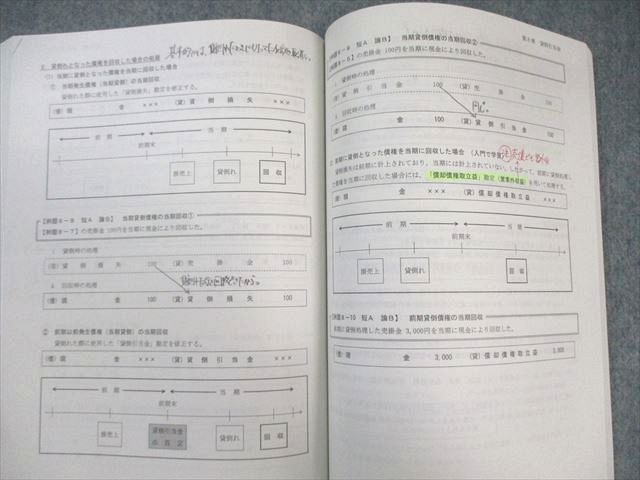 2 貸倒れとなった債権を回収した場合の処理
(1) 当期に貸倒となった債権を当期に回収した場合
① 当期発生債権(当期貸倒)の当期回収
貸倒れた際に使用した「貸倒損失」勘定を修正する。
(借) 現 金 ××× (貸) 貸 倒 損 失 ×××
前 期 当 期
前期末
掛売上 貸倒れ 回 収
【例題8-8 短A 論B】 当期貸倒債権の当期回収①
【例題8-7】の売掛金 100円を当期に現金により回収した。
i 貸倒時の処理
(借) 貸 倒 損 失 100 (貸) 売 掛 金 100
ii 回収時の処理
(借) 現 金 100 (貸) 貸 倒 損 失 100
② 前期以前発生債権(当期貸倒)の当期回収
貸倒れた際に使用した「貸倒引当金」勘定を修正する。
(借) 現 金 ××× (貸) 貸 倒 引 当 金 ×××
前 期 当 期
前期末
掛売上 貸倒引当金の設定 貸倒れ 回 収
第8章 貸倒引当金
【例題8-9 短A 論B】 当期貸倒債権の当期回収②
の売掛金 100円を当期に現金により回収した。
i 貸倒時の処理
100 (貸) 売 掛 金 100
ii 回収時の処理
同じ。
(借) 現 金 100 (貸) 貸 倒 引 当 金 100
前期に貸倒となった債権を当期に回収した場合 (入門で学習)
貸倒損失は前期に計上されており、当期には計上されていない。したがって、前期に貸倒処理し
た債権を当期に回収した場合には、「償却債権取立益」勘定(営業外収益)を用いて処理する。
(借) 現 金 ××× (貸) 償 却 債 権 取 立 益 ×××
前 期 当 期
前期末
掛売上 貸倒れ 回 収
【例題8-10 短A 論B】 前期貸倒債権の当期回収
前期に貸倒処理した売掛金 3,000円を当期に現金により回収した。
(借) 現 金 3,000 (貸) 償 却 債 権 取 立 益 3,000